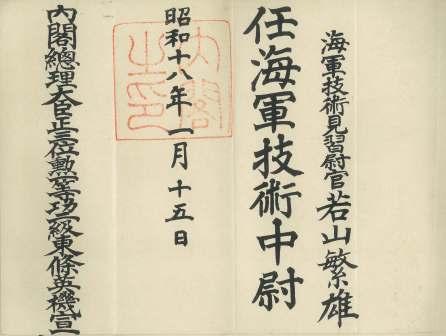 海軍技術見習尉官若山敏雄
任海軍技術中尉
昭和十八年一月十五日
内閣之印
内閣總理大臣正三位勲一等功二級東條英機宣